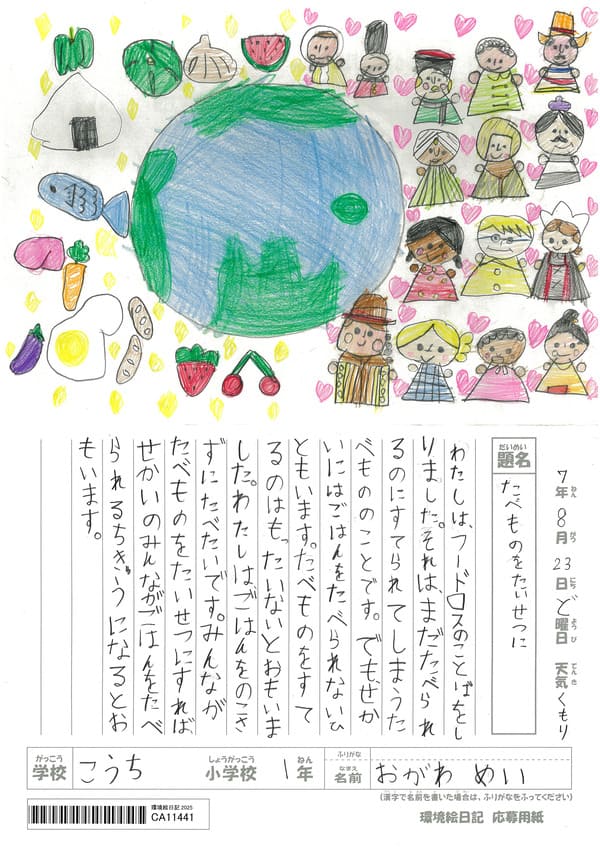 7年ねん8月がつ23日にちど曜日ようび 天気てんきくもり
だいめい
題名
たべものをたいせつに
わたしは、フードロスのことばをし
りました。それは、まだたべられ
るのにすてられてしまうた
べもののことです。でも、せか
いにはごはんをたべられないひ
ともいます。たべものをすて
るのはもったいないとおもいま
した。わたしは、ごはんをのこさ
ずにたべたいです。みんなが
たべものをたいせつにすれば
せかいのみんながごはんをたべ
られるちきゅうになるとお
もいます。
がっこう
学校 こうち
しょうがっこう
小学校 1年ねん
ふりがな
なまえ
名前 おがわ めい
(漢字で名前を書いた場合は、ふりがなをふってください)
環境絵日記2025
CA11441
環境絵日記 応募用紙